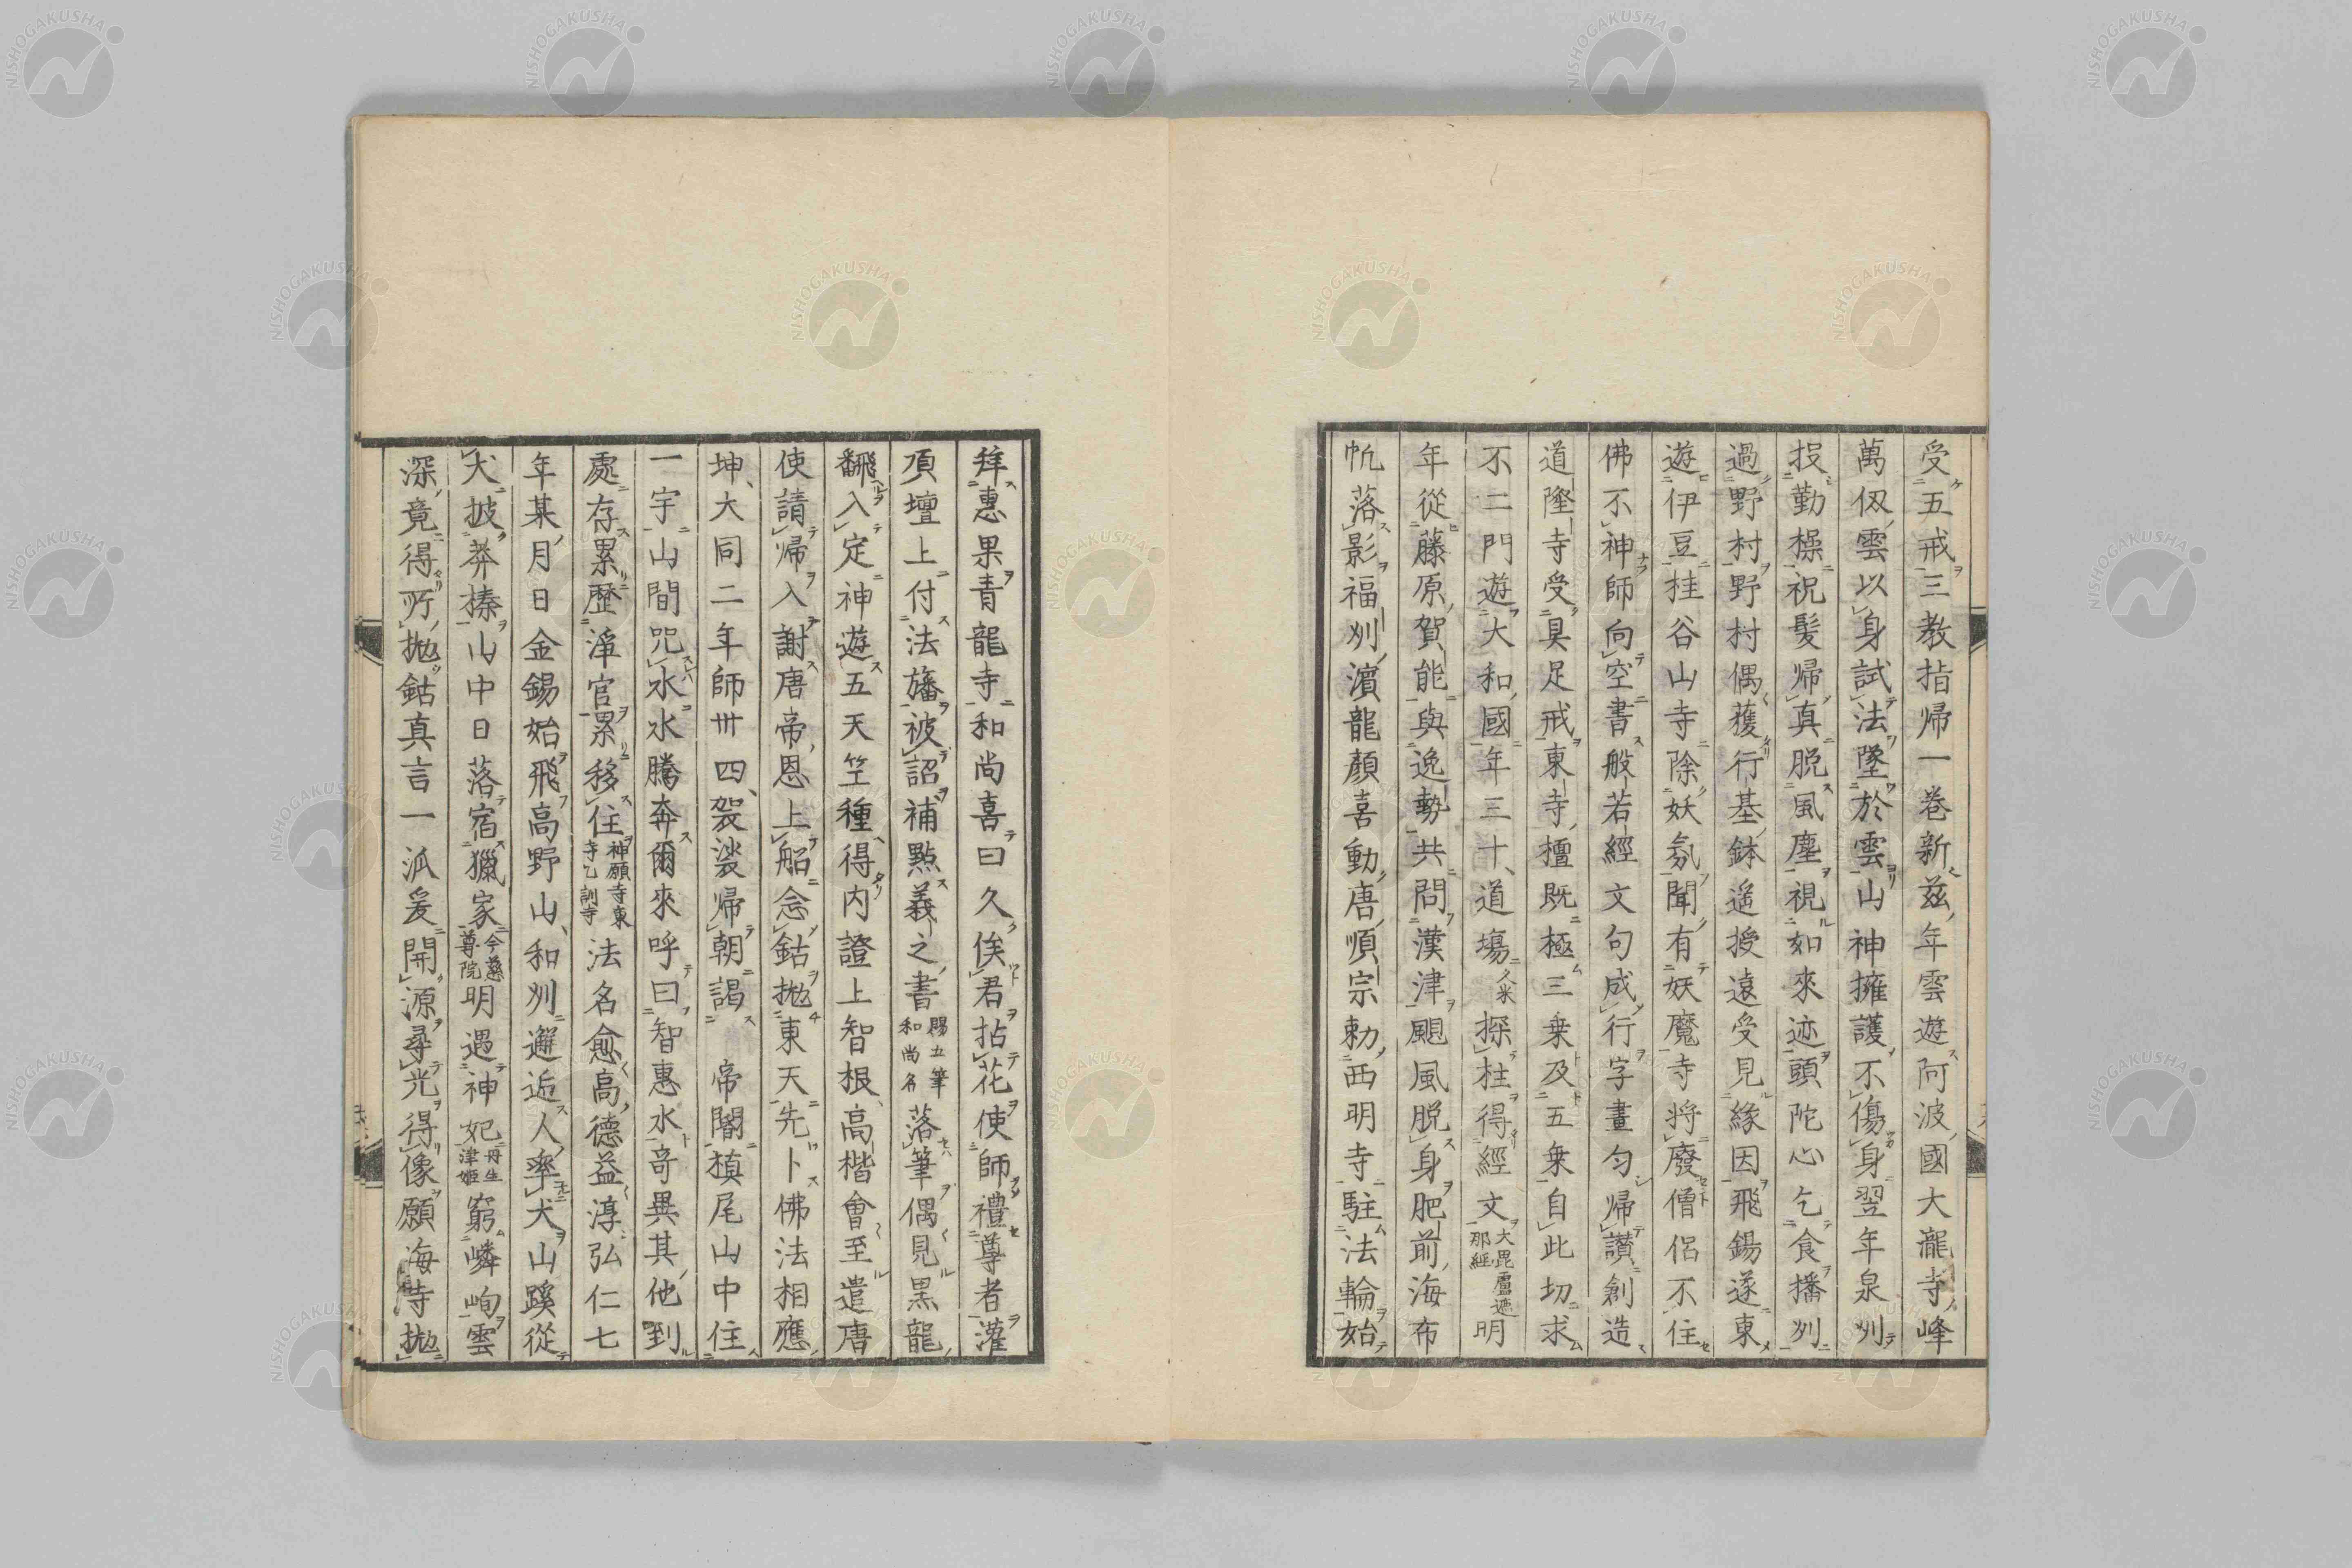 受五戒三教指帰一巻新茲年雲遊阿波國大瀧寺峰
萬仭雲以身試法墜於雲山神擁護不傷身翌年泉刕
投勤操祝髪帰真脱風塵視如來迹頭陀心乞食播刕
過野村野村偶獲行基鉢遥授遠受見緣因飛錫遂東
遊伊豆桂谷山寺除妖氛聞有妖魔寺将廢僧侶不住
佛不神師向空書般若經文句成行字畫匀帰讃創造
道隆寺受具足戒東寺檀既極三乗及五乗自此切求
不二門遊大和國年三十道塲久米探柱得經文大毘盧遮那經明
年從藤原賀能與逸勢共問漢津颶風脱身肥前海布
帆落影福刕濵龍顔喜動唐順宗勅西明寺駐法輪始
拜惠果青龍寺和尚喜曰久俟君拈花使師禮尊者灌
頂壇上付法旛被詔補點義之書賜五筆和尚名落筆偶見黒龍
翻飛入定神遊五天竺種得内證上智根高楷會至遣唐
使請帰入謝唐帝恩上船念鈷抛東天先卜佛法相應
坤大同二年師卅四袈裟帰朝謁帝闇槙尾山中住
一宇山間咒水水騰奔爾來呼曰智惠水竒異其他到
處存累歴滓官累移住神願寺東寺乙訓寺法名愈高德益淳弘仁七
年某月日金錫始飛高野山和刕邂逅人率犬山蹊從
犬披莽榛山中日落宿獵家今慈尊院明遇神妃丹生津姫窮嶙峋雲
深竟得所抛鈷真言一派爰開源尋光得像願海寺抛
NISHOGAKUSHA